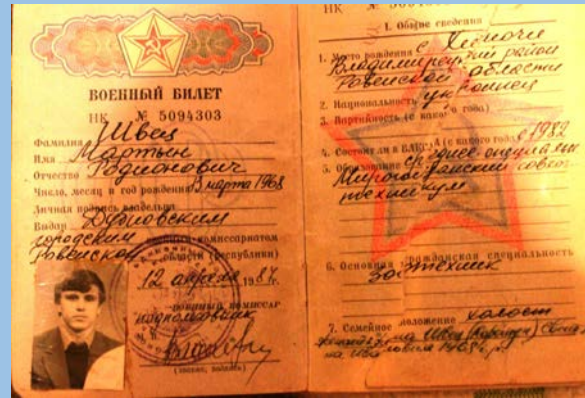 ВОЕННЫЙ БИЛЕТ
НК № 5094303
Фамилия Швец
Имя Мартын
Отчество Родионович
Число, месяц и год рождения 3 марта 1968
Личная подпись владельца
Выдан Дубновским
городским военным комиссариатом
Ровенской области (республики)
12 апреля 1987 г.
ВОЕННЫЙ КОМИССАР
подполковник
М. П.
(звание, подпись)
НК №
I. Общие сведения
1. Место рождения с. Хиночи
Владимирецкий район
Ровенской области
2. Национальность украинец
3. Партийность (с какого года)
4. Состоит ли в ВЛКСМ (с какого года) с 1982
5. Образование среднее специальн
Мирогощанский совхоз
техникум
6. Основная гражданская специальность
зоотехник
7. Семейное положение холост
на Швец